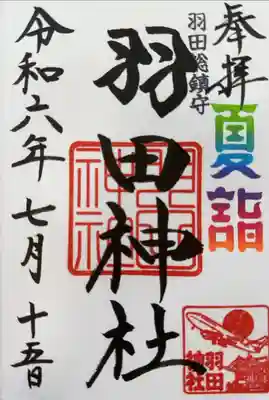 奉拝
夏詣
羽田総鎮守
羽田神社
令和六年七月十五日
羽田神社
羽田神社